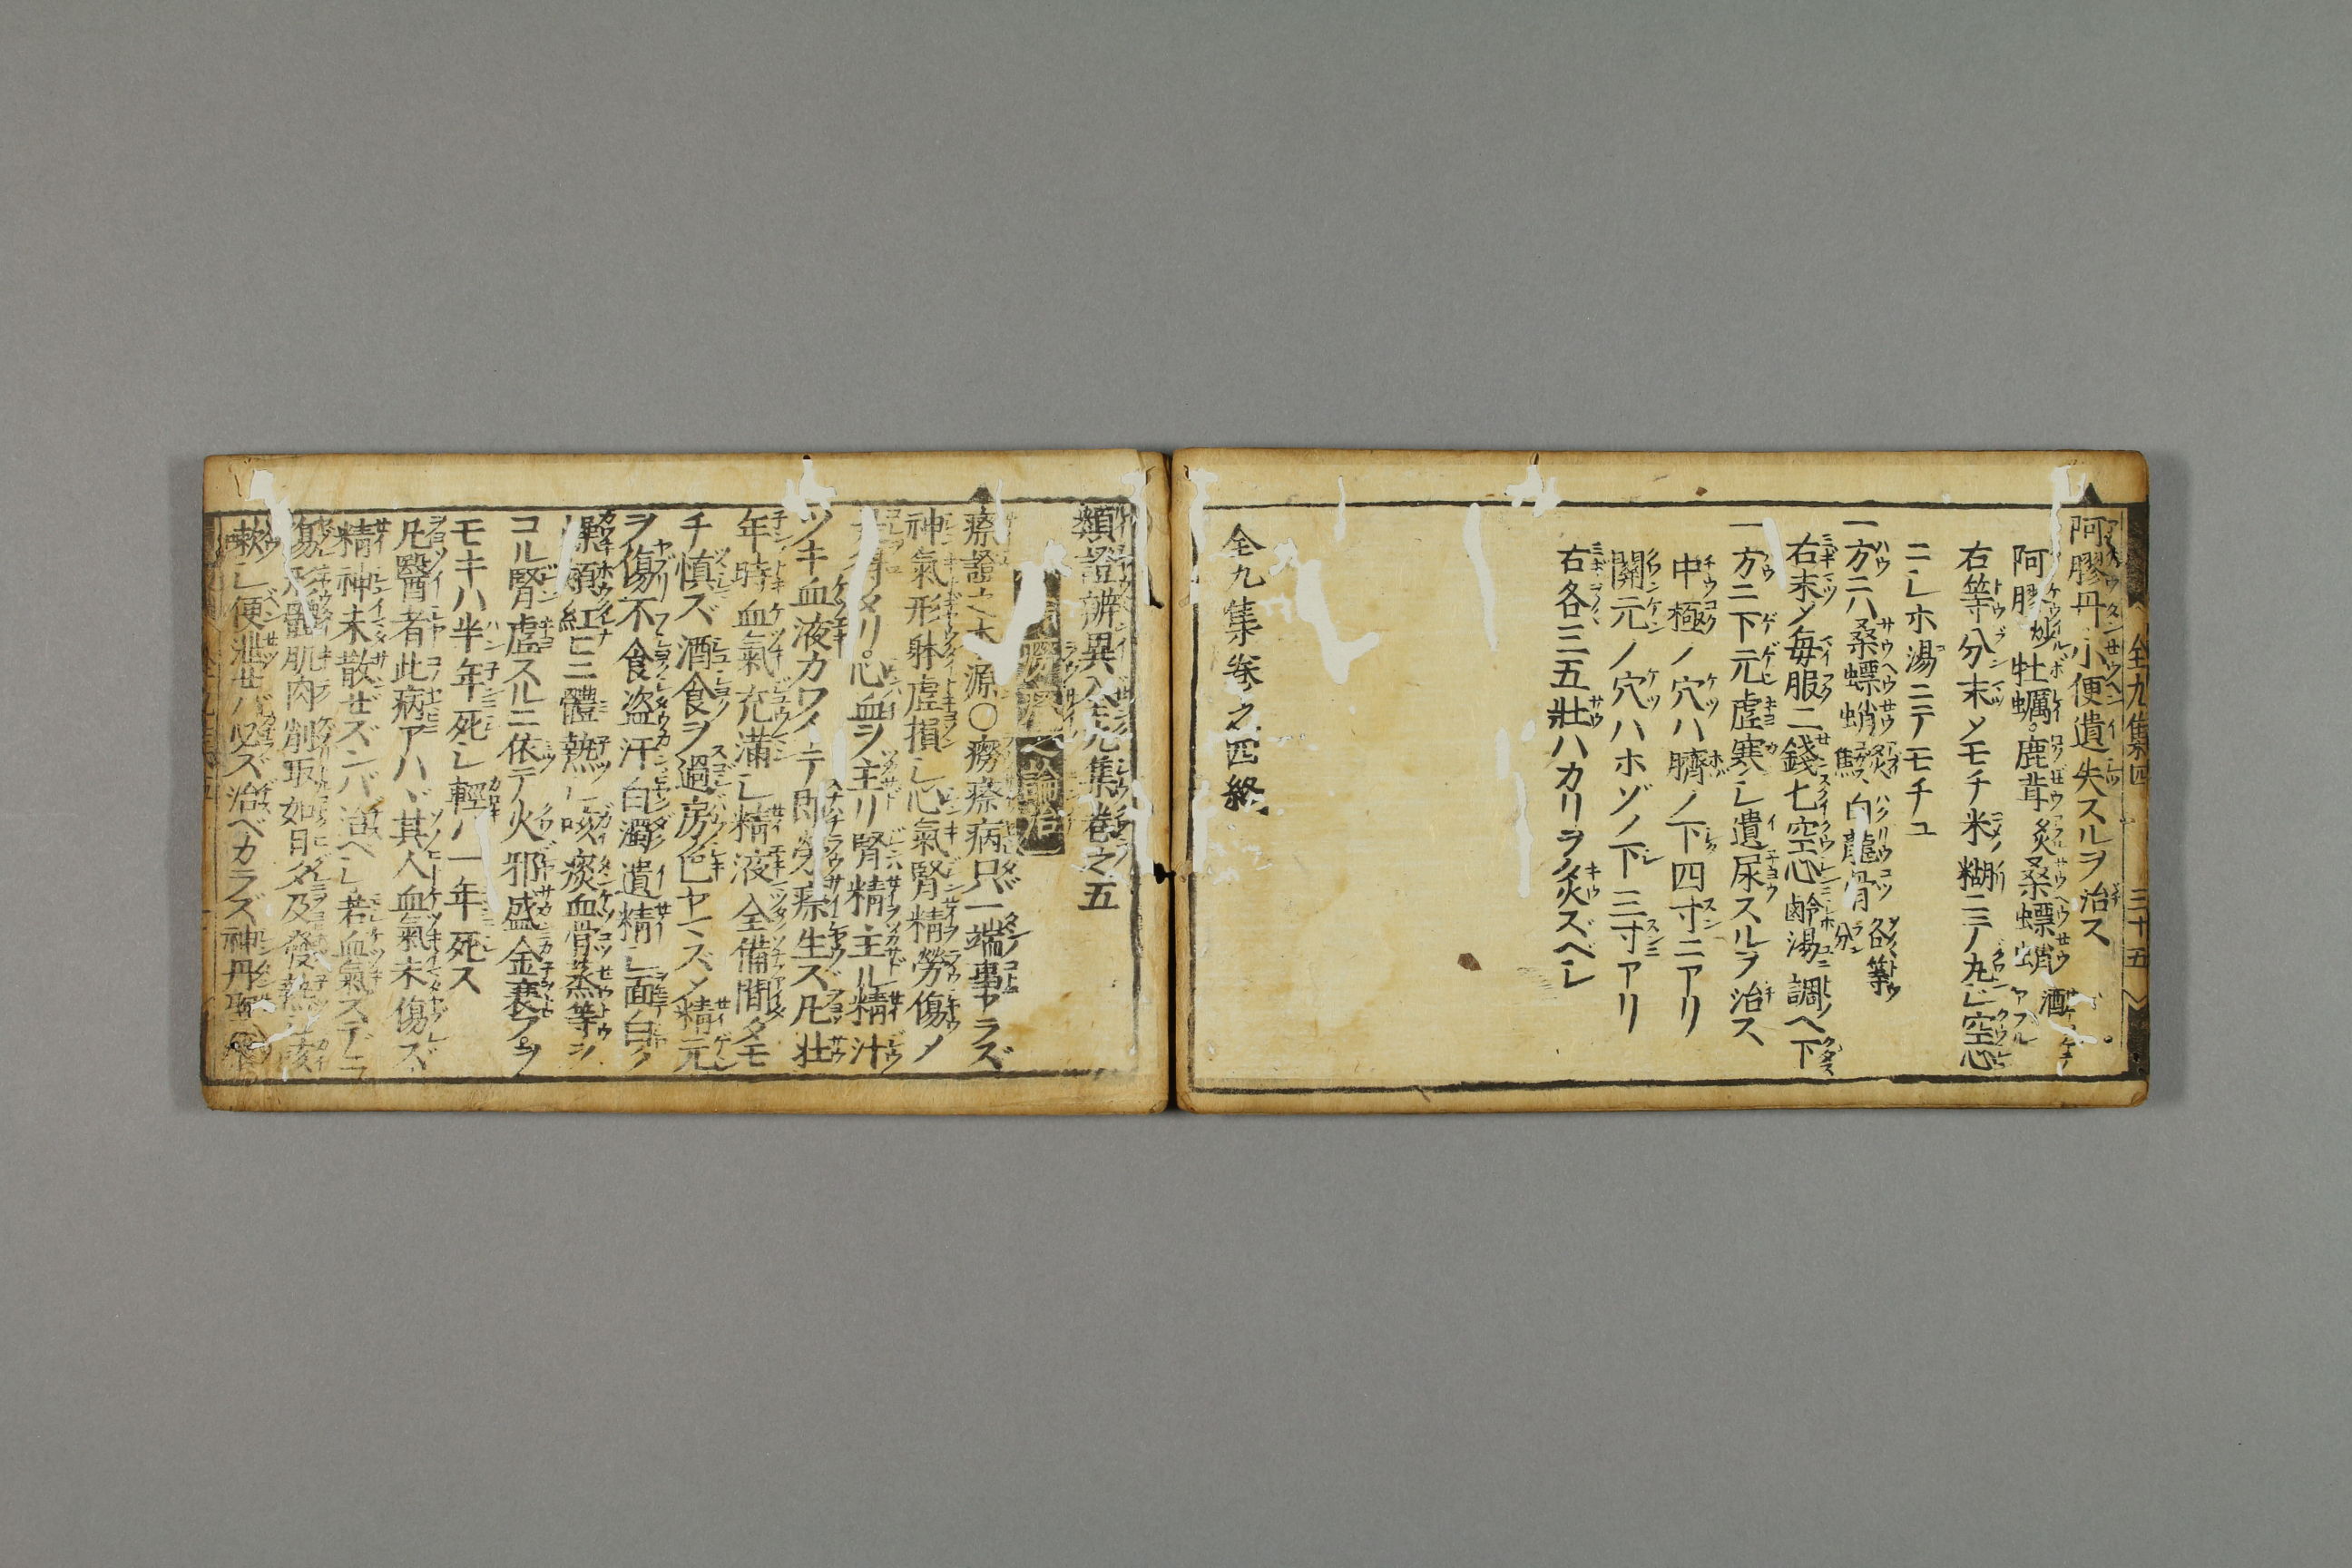 全九集四 三十五
阿膠丹 小便遺失スルヲ治ス
阿膠炒 牡蠣 鹿茸炙 桑螵蛸酒
右等分末メモチ米ノ糊ニテ丸ジ空心
ニシホ湯ニテモチユ
一方ニハ桑螵蛸炙 白龍骨各等分
右末メ毎服二錢七空心鹽湯調ヘ下
一方ニ下元虚寒シ遺尿スルヲ治ス
中極ノ穴ハ臍ノ下四寸ニアリ
關元ノ穴ハホゾノ下三寸アリ
右各三五壯ハカリヲ灸ズベシ
全九集巻之四終
類證辨異全九集巻之五
論治
瘵證之本源〇癆瘵病只一端事アラズ
神氣形躰虚損シ心氣腎精勞傷メ
メリ心血ヲ主リ腎精主ル精汁
ツキ血液カワイテ即勞瘵生ズ凡壮
年時血氣充滿シ精液全備間タモ
チ慎ズ酒食ヲ過房色ヤマズメ精元
ヲ傷不食盗汗白濁遺精シ面白ク
頬紅ニ體熱シ咳痰血骨蒸等シ
コル腎虚スルニ依テ火邪盛金衰フヲ
モキハ半年死シ輕ハ一年死ス
凡醫者此病アハヾ其人血氣未傷ズ
精神未散せズンバ治ヘシ若血氣ステニ
傷形體肌肉削取如日夕及發熱咳
嗽シ便泄せバ必ズ治ベカラズ神丹